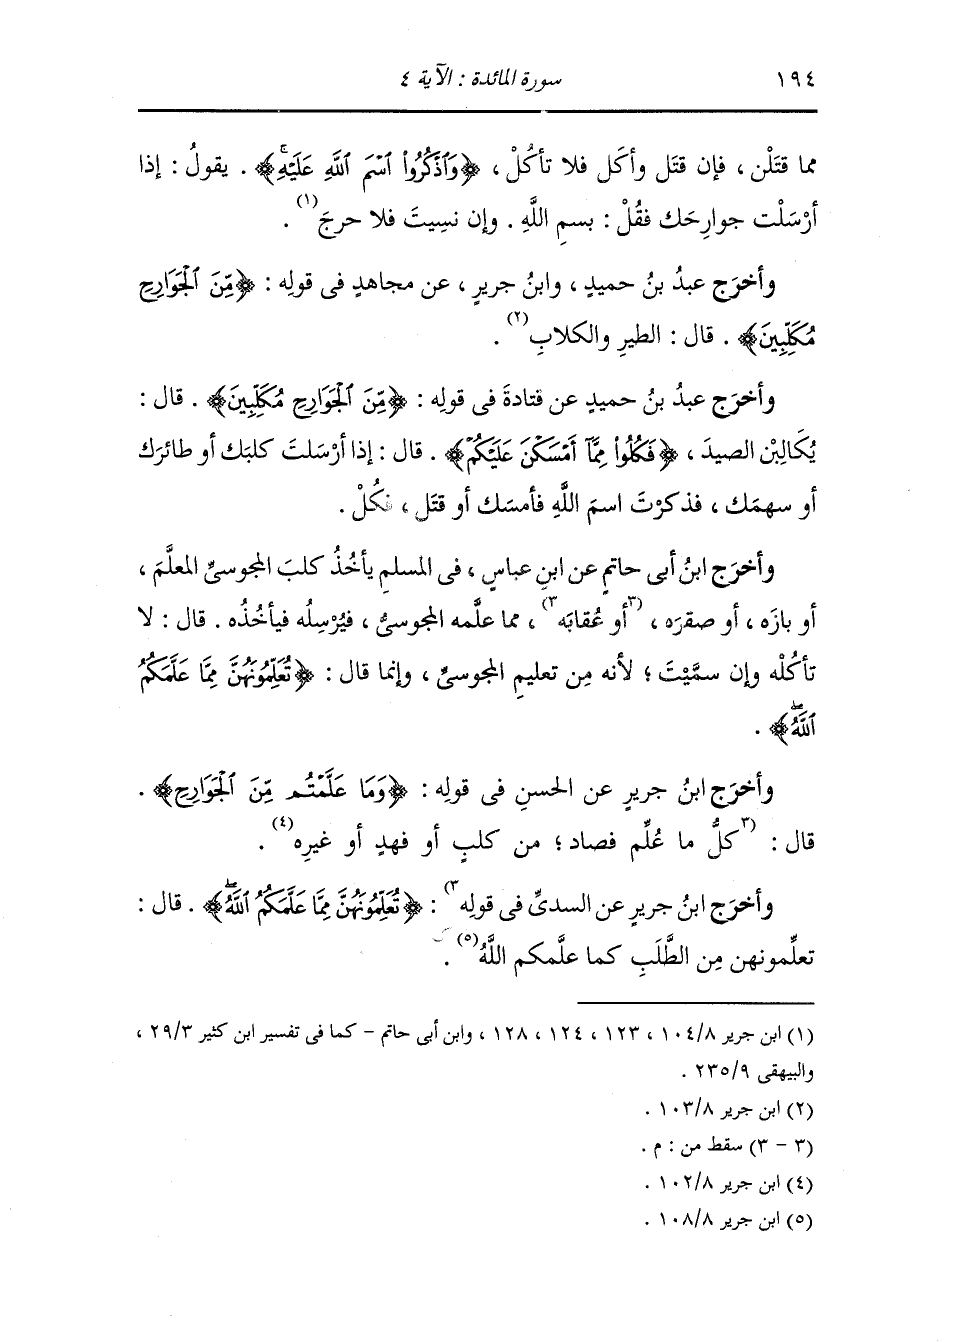 ١٩٤ سورة المائدة : الآية ٤
مما قتَلْن ، فإن قتَل وأكَل فلا تأكُلْ ، ﴿وَٱذْكُرُوا۟ ٱسْمَ ٱللَّهِ عَلَيْهِۚ﴾ . يقولُ : إذا
أرْسَلْت جوارِحَك فقُلْ : بسمِ اللَّهِ . وإن نسِيتَ فلا حرجَ(١) .
وأخرَج عبدُ بنُ حميدٍ ، وابنُ جريرٍ ، عن مجاهدٍ فى قولِه : ﴿مِّنَ ٱلْجَوَارِحِ
مُكَلِّبِينَ﴾ . قال : الطيرِ والكلابِ(٢) .
وأخرَج عبدُ بنُ حميدٍ عن قتادةَ فى قولِه : ﴿مِّنَ ٱلْجَوَارِحِ مُكَلِّبِينَ﴾ . قال :
يُكَالِبْن الصيدَ ، ﴿فَكُلُوا۟ مِمَّآ أَمْسَكْنَ عَلَيْكُمْ﴾ . قال : إذا أرْسَلتَ كلبَك أو طائرَك
أو سهمَك ، فذكرْتَ اسمَ اللَّهِ فأمسَك أو قتَل ، فكُلْ .
وأخرَج ابنُ أبى حاتمٍ عن ابنِ عباسٍ ، فى المسلمِ يأخُذُ كلبَ المجوسىِّ المعلَّمَ ،
أو بازَه ، أو صقرَه ، (٣أو عُقابَه٣) ، مما علَّمه المجوسىُّ ، فيُرْسِلُه فيأخُذُه . قال : لا
تأكُلْه وإن سمَّيْتَ ؛ لأنه مِن تعليمِ المجوسىِّ ، وإنما قال : ﴿تُعَلِّمُونَهُنَّ مِمَّا عَلَّمَكُمُ
ٱللَّهُۖ﴾ .
وأخرَج ابنُ جريرٍ عن الحسنِ فى قولِه : ﴿وَمَا عَلَّمْتُم مِّنَ ٱلْجَوَارِحِ﴾ .
قال : (٣كلُّ ما عُلِّم فصاد ؛ من كلبٍ أو فهدٍ أو غيرِه(٤) .
وأخرَج ابنُ جريرٍ عن السدىِّ فى قولِه٣) : ﴿تُعَلِّمُونَهُنَّ مِمَّا عَلَّمَكُمُ ٱللَّهُۖ﴾ . قال :
تعلِّمونهن مِن الطَّلَبِ كما علَّمكم اللَّهُ(٥) .
(١) ابن جرير ١٠٤/٨ ، ١٢٣ ، ١٢٤ ، ١٢٨ ، وابن أبى حاتم - كما فى تفسير ابن كثير ٢٩/٣ ،
والبيهقى ٢٣٥/٩ .
(٢) ابن جرير ١٠٣/٨ .
(٣ - ٣) سقط من : م .
(٤) ابن جرير ١٠٢/٨ .
(٥) ابن جرير ١٠٨/٨ .